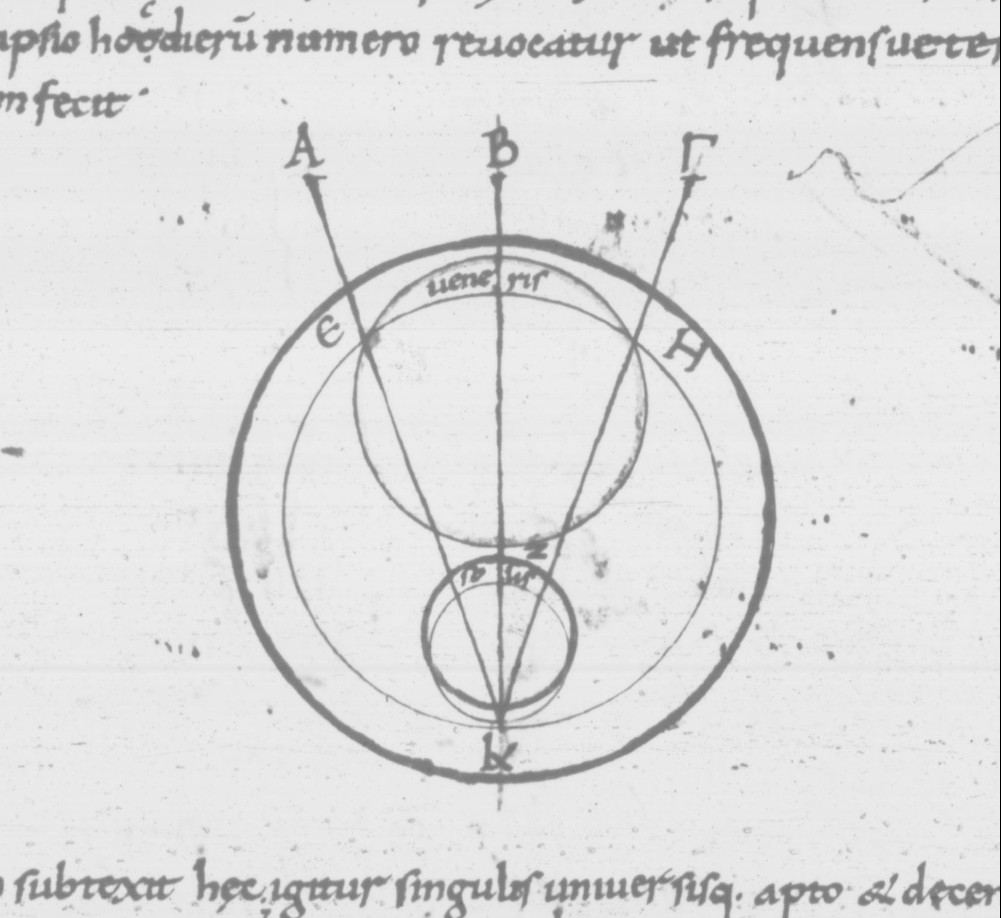 ipso hoc dierū numero reuocatur ut frequens uete
m fecit
A B Γ
uene ris
Є H
Z
so lis
K
subtexit hęc igitur singulis uniuersisq. apto & decen